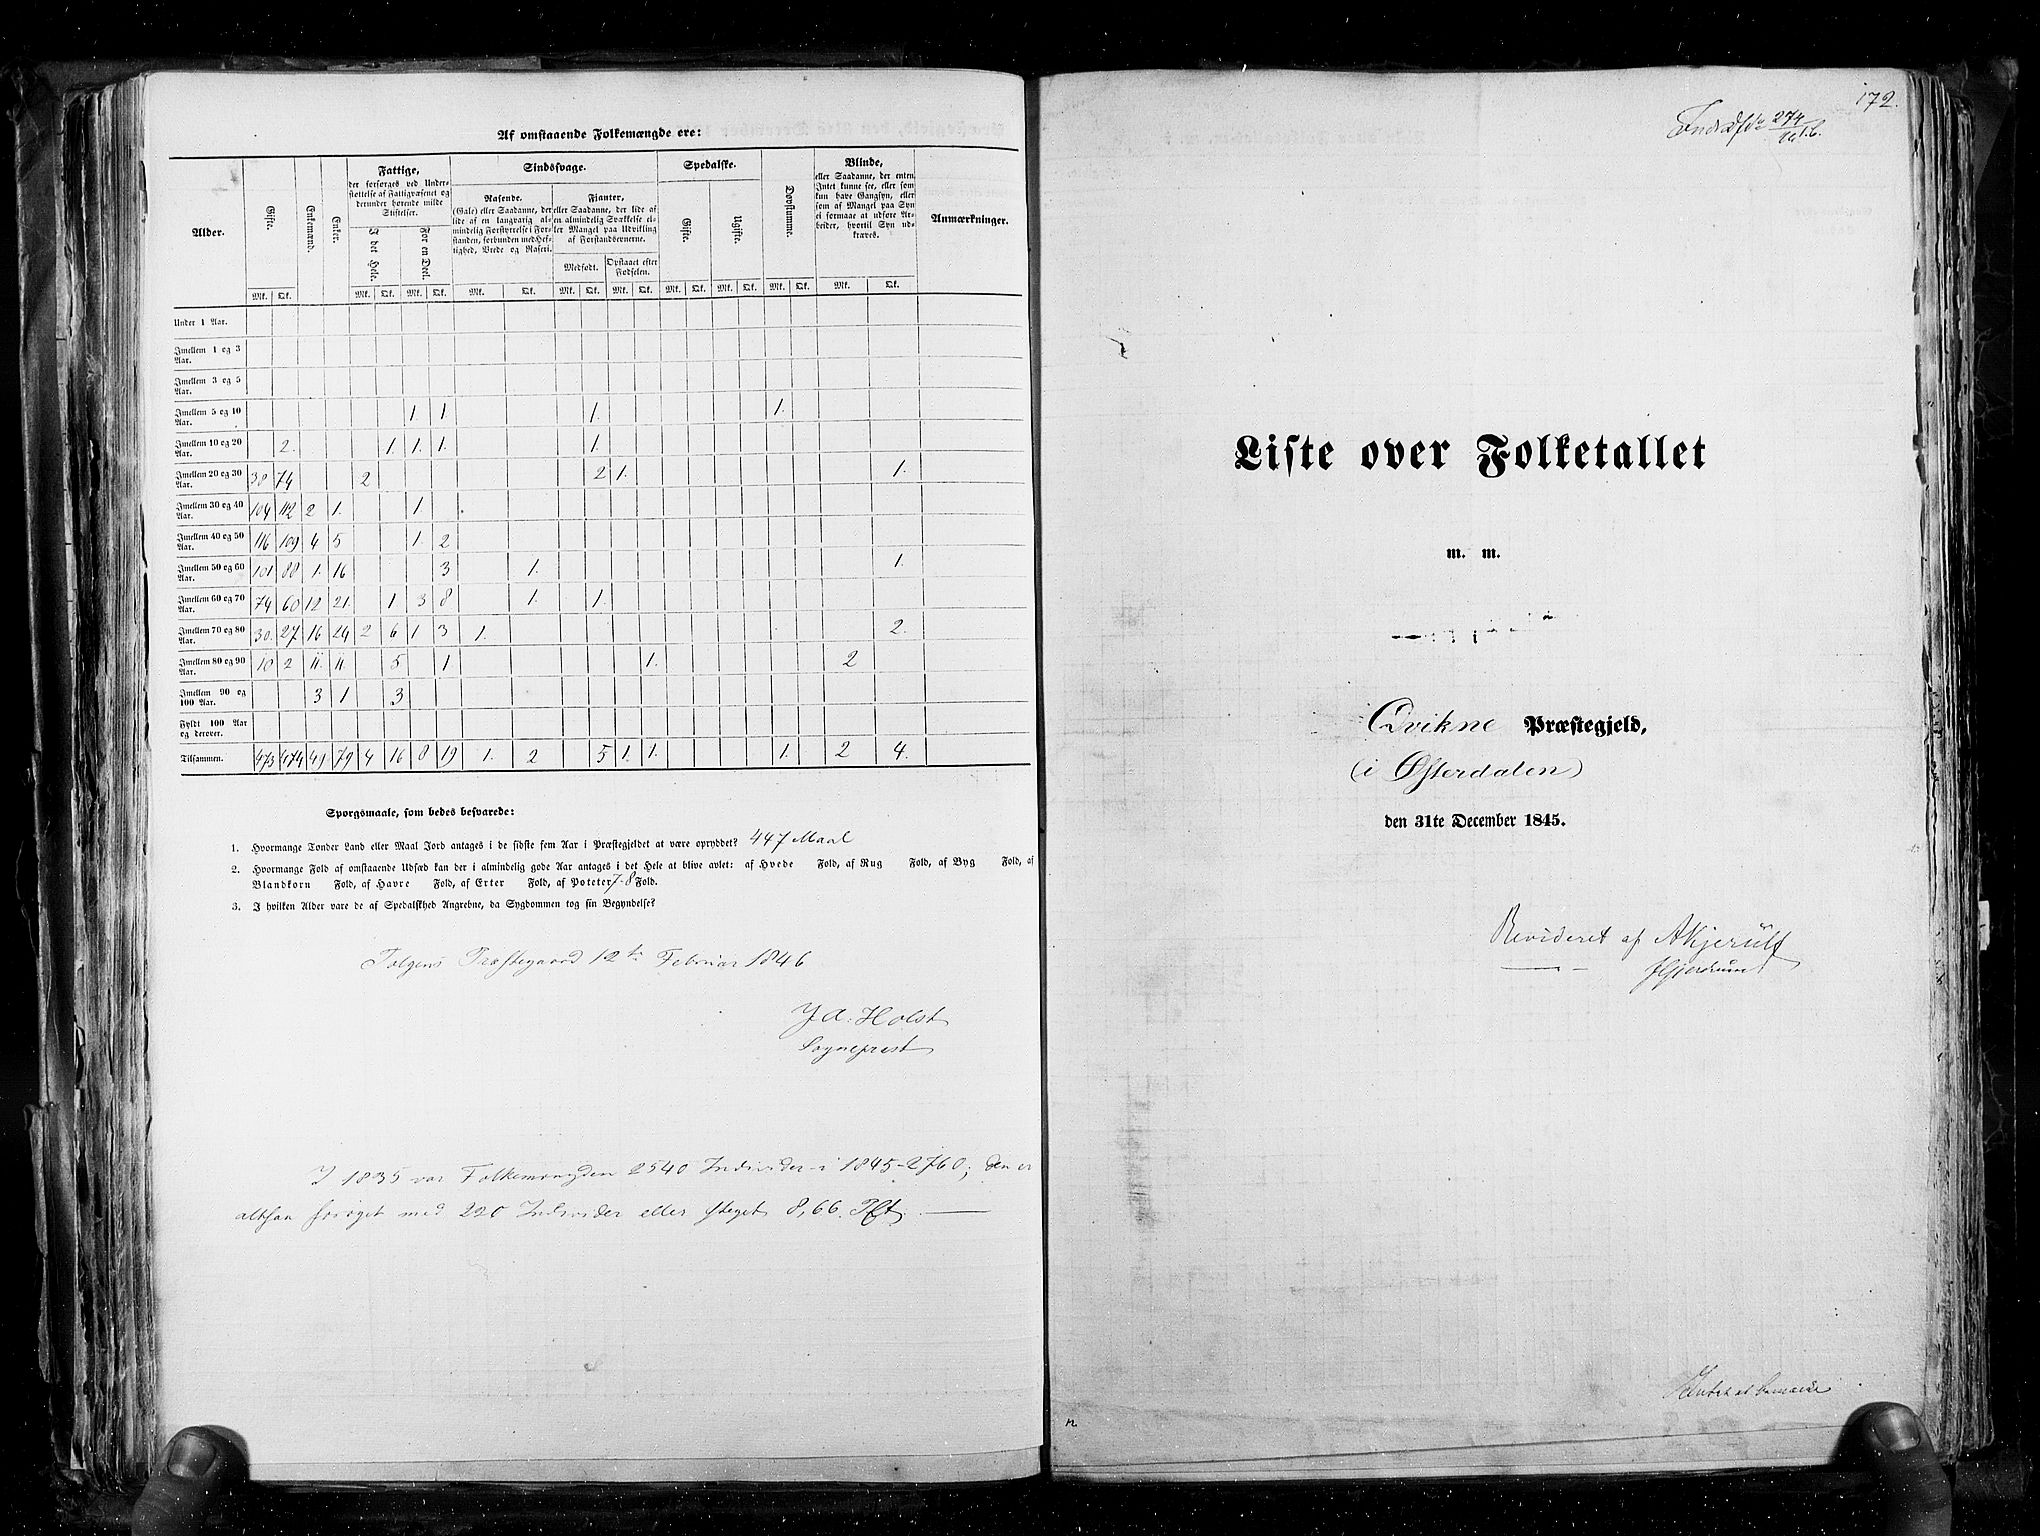 Af omstaaende Folkemængde ere:
Alder. Gifte. Enkemænd. Enker. Fattige, der forsørges ved Understøttelse af Fattigvæsenet og derunder hørende milde Stiftelser. Sindssvage. Spedalske. Døvstumme. Blinde, eller Saadanne, der enten Intet kunne see, eller som kun have Gangsyn, eller som af Mangel paa Syn ei formaae at udføre Arbeider, hvortil Syn udkræves. Anmærkninger.
I det Hele. For en Deel. Rasende. (Gale) eller Saadanne, der lide af en langvarig almindelig Forstyrrelse i Forstanden, forbunden med Heftighed, Vrede og Raseri. Fianter, eller Saadanne, der lide af en almindelig Svækkelse eller Mangel paa Udvikling af Forstandsevnerne. Gifte. Ugifte.
Medfødt. Opstaaet efter Fødselen.
Mk. Qk. Mk. Qk. Mk. Qk. Mk. Qk. Mk. Qk. Mk. Qk. Mk. Qk. Mk. Qk. Mk. Qk. Mk. Qk.
Under 1 Aar.
Imellem 1 og 3 Aar.
Imellem 3 og 5 Aar.
Imellem 5 og 10 Aar. 1. 1 1. 1.
Imellem 10 og 20 Aar. 2. 1. 1. 1. 1.
Imellem 20 og 30 Aar. 38 74 2 2 1. 1.
Imellem 30 og 40 Aar. 104 112 2 1. 1.
Imellem 40 og 50 Aar. 116 109 4 5 1. 2
Imellem 50 og 60 Aar. 101 88 1. 16 3 1. 1.
Imellem 60 og 70 Aar. 74 60 12 21. 1 3 8 1. 1.
Imellem 70 og 80 Aar. 30. 27 16 24 2 6 1 3 1. 2.
Imellem 80 og 90 Aar. 10 2 11. 11. 5 1. 1. 2
Imellem 90 og 100 Aar. 3 1 3
Fyldt 100 Aar og derover.
Tilsammen. 473 474 49 79 4 16 8 19 1. 2 5 1. 1. 1. 2 4.
Spørgsmaale, som bedes besvarede:
1. Hvormange Tønder Land eller Maal Jord antages i de sidste fem Aar i Præstegjeldet at være opryddet? 447 Maal
2. Hvormange Fold af omstaaende Udsæd kan der i almindelig gode Aar antages i det Hele at blive avlet: af Hvede Fold, af Rug Fold, af Byg Fold, af
Blandkorn Fold, af Havre Fold, af Erter Fold, af Poteter 7-8 Fold.
3. I hvilken Alder vare de af Spedalskhed Angrebne, da Sygdommen tog sin Begyndelse?
Tolgens Præstegaard 12te Februar 1846
J.A. Holst
Sogneprest
I 1835 var Folkemængden 2540 Individer i 1845-2760; den er
altsaa forøget med 220 Individer eller steget 8,66. Pct.
172.
274
Liste over Folketallet
m. m.
Qvikne Præstegjeld,
(i Østerdalen)
den 31te December 1845.
Revideret af AKjerulf
HGjerdrum